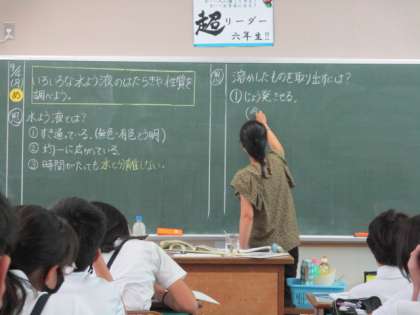 超リーダー
六年生!!
め
いろいろな水よう液のはたらきや性質を
調べよう。
思
水よう液とは?
①すき通っている。(無色・有色とう明)
②均一に広がっている。
③時間がたっても水と分離しない。
思
溶かしたものを取り出すには?
①じょう発させる。